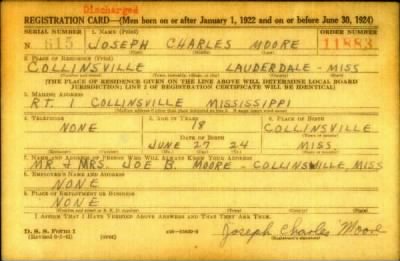 Discharged
REGISTRATION CARD—(Men born on or after January 1, 1922 and on or before June 30, 1924)
SERIAL NUMBER 1. NAME (Print) ORDER NUMBER
N 615 JOSEPH CHARLES MOORE 11883
2. PLACE OF RESIDENCE (Print)
COLLINSVILLE LAUDERDALE - MISS
(THE PLACE OF RESIDENCE GIVEN ON THE LINE ABOVE WILL DETERMINE LOCAL BOARD
JURISDICTION; LINE 2 OF REGISTRATION CERTIFICATE WILL BE IDENTICAL)
3. MAILING ADDRESS
RT. 1 COLLINSVILLE MISSISSIPPI
4. TELEPHONE 5. AGE IN YEARS 6. PLACE OF BIRTH
NONE 18 COLLINSVILLE
DATE OF BIRTH
JUNE 27 24 MISS.
7. NAME AND ADDRESS OF PERSON WHO WILL ALWAYS KNOW YOUR ADDRESS
MR. & MRS. JOE B. MOORE - COLLINSVILLE, MISS
8. EMPLOYER'S NAME AND ADDRESS
NONE
9. PLACE OF EMPLOYMENT OR BUSINESS
NONE
I AFFIRM THAT I HAVE VERIFIED ABOVE ANSWERS AND THAT THEY ARE TRUE.
D. S. S. FORM 1 Joseph Charles Moore